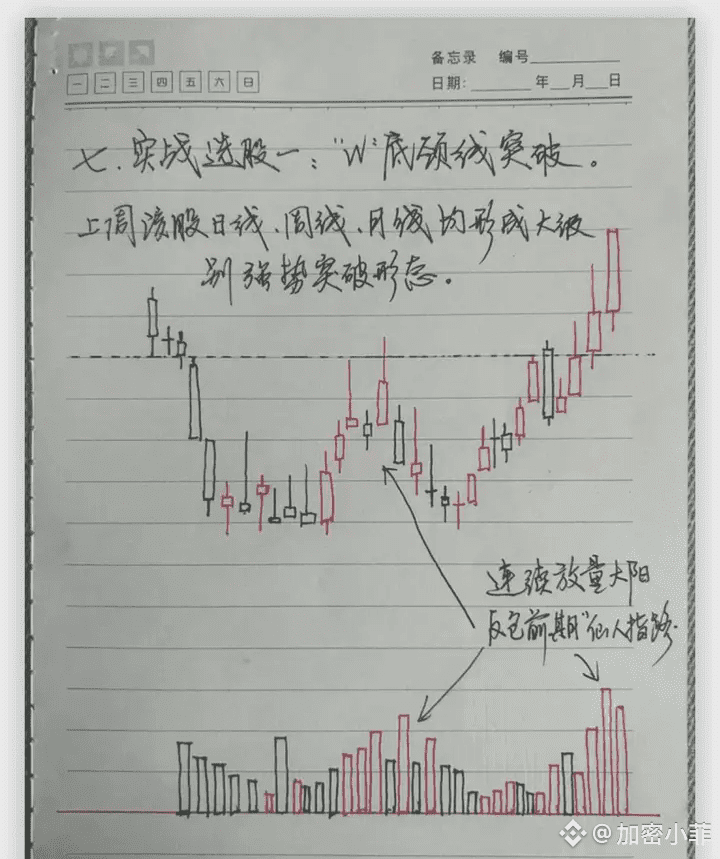 备忘录 编号
一 二 三 四 五 六 日
日期: 年 月 日
七.实战选股一:"W"底颈线突破。
上周该股日线、周线、月线均形成大级
别强势突破形态。
连续放量大阳
反包前期"仙人指路.
@加密小菲